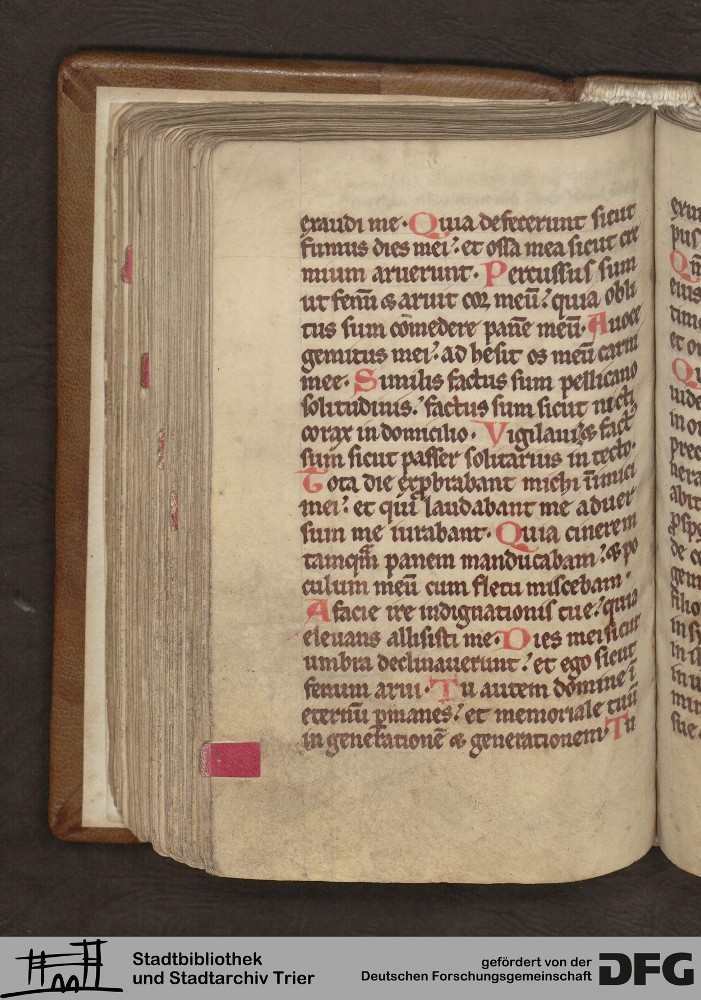 exaudi me. Quia defecerunt sicut
fumus dies mei: et ossa mea sicut cre
mium aruerunt. Percussus sum
ut fenū & aruit cor meū: quia obli
tus sum cōmedere panē meū. A uoce
gemitus mei: ad hesit os meū carni
mee. Similis factus sum pellicano
solitudinis: factus sum sicut nicti
corax in domicilio. Vigilaui & fact᷒
sum sicut passer solitarius in tecto.
Tota die exp̱brabant michi inimici
mei: et qui laudabant me aduer
sum me iurabant. Quia cinerem
tamqm̄ panem manducabam: & po
culum meū cum fletu miscebam.
A facie ire indignationis tue: quia
eleuans allisisti me. Dies mei sicut
umbra declinauerunt: et ego sicut
fenum arui. Tu autem domine ī
eternū p̱manes: et memoriale tuū
in generationē & generationem. Tu
Stadtbibliothek
und Stadtarchiv Trier
gefördert von der
Deutschen Forschungsgemeinschaft DFG